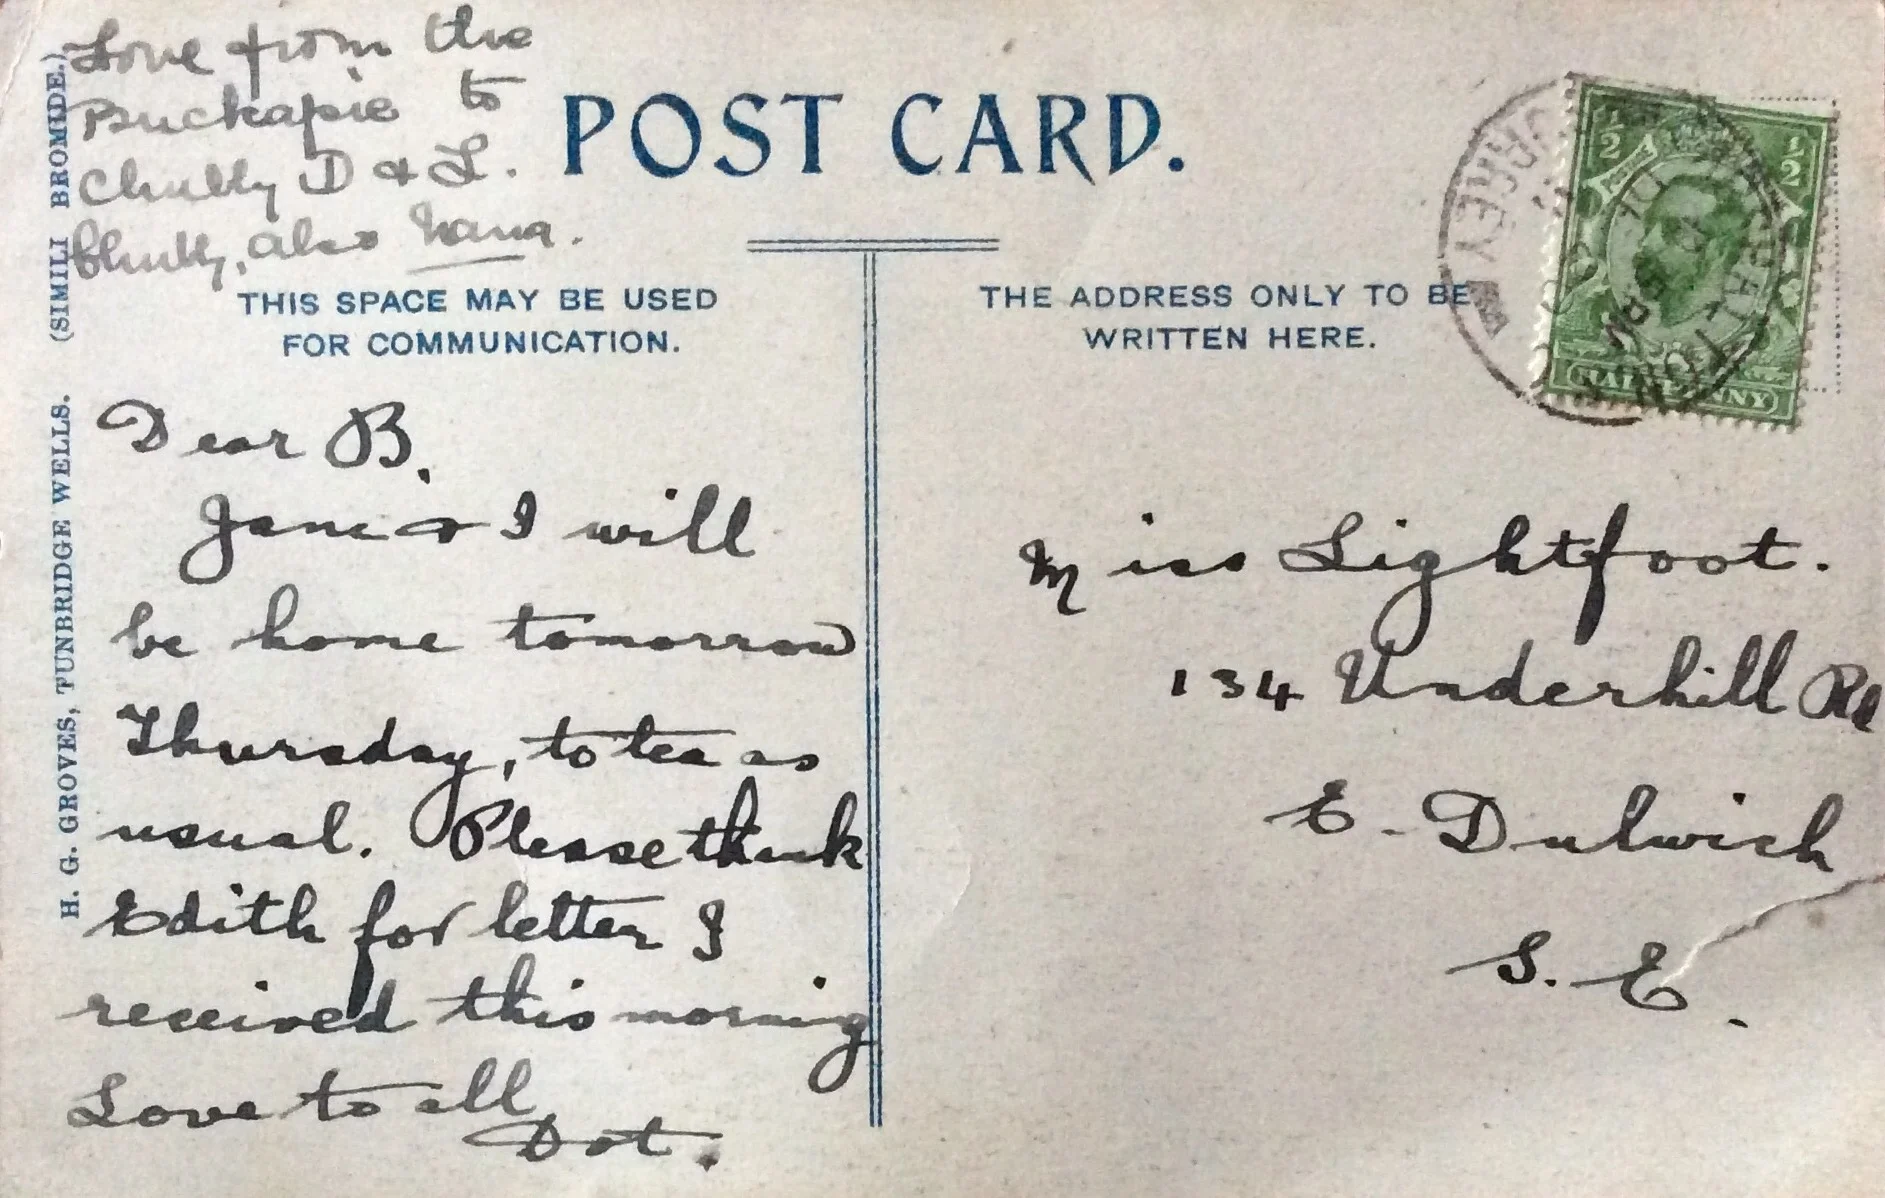 Love from the
Puckapie to
Chubby D & L.
Chubby, also Nana.
POST CARD.
THIS SPACE MAY BE USED
FOR COMMUNICATION.
THE ADDRESS ONLY TO BE
WRITTEN HERE.
H. G. GROVES, TUNBRIDGE WELLS. (SIMILI BROMIDE.)
Dear B.
Janie & I will
be home tomorrow
Thursday, to tea as
usual. Please thank
Edith for letter I
received this morning
Love to all
Dot.
Miss Lightfoot.
134 Underhill Rd
E. Dulwich
S. E.
1/2 1/2
HALFPENNY
SURREY